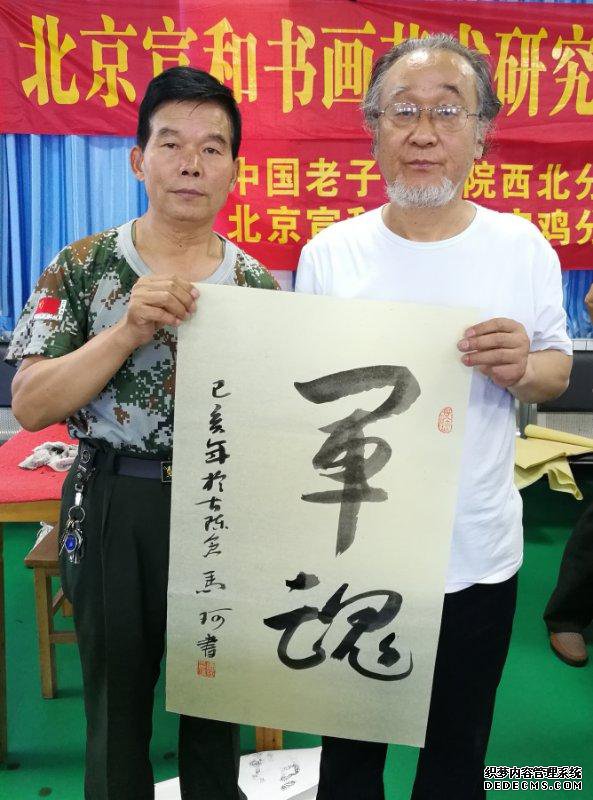 北京宣和书画艺术研究
中国老子 院西北分
北京宣和 鸡分
軍魂
己亥年於古陈仓 馬珂書
织梦内容管理系统
DEDECMS.COM